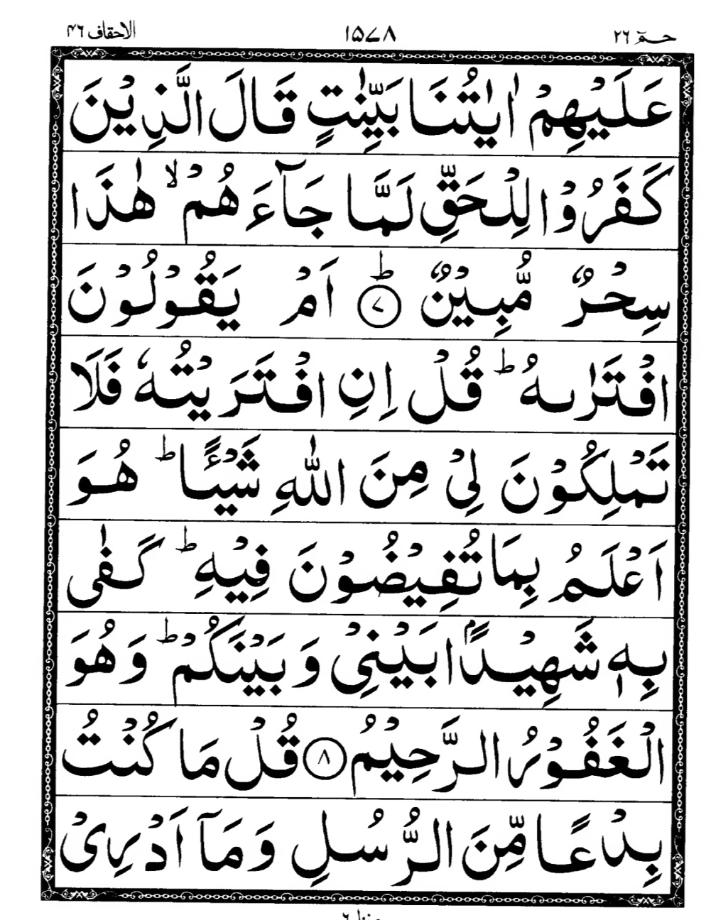 حٰمٓ ٢٦ ١٥٧٨ الاحقاف ٤٦
عَلَيْهِمْ اٰيٰتُنَا بَيِّنٰتٍ قَالَ الَّذِيْنَ
كَفَرُوْا لِلْحَقِّ لَمَّا جَآءَهُمْ ۙ هٰذَا
سِحْرٌ مُّبِيْنٌ ؕ﴿۷﴾ اَمْ يَقُوْلُوْنَ
افْتَرٰىهُ ؕ قُلْ اِنِ افْتَرَيْتُهٗ فَلَا
تَمْلِكُوْنَ لِىْ مِنَ اللّٰهِ شَيْـًٔا ؕ هُوَ
اَعْلَمُ بِمَا تُفِيْضُوْنَ فِيْهِ ؕ كَفٰى
بِهٖ شَهِيْدًۢا بَيْنِىْ وَ بَيْنَكُمْ ؕ وَ هُوَ
الْغَفُوْرُ الرَّحِيْمُ ﴿۸﴾ قُلْ مَا كُنْتُ
بِدْعًا مِّنَ الرُّسُلِ وَ مَآ اَدْرِىْ